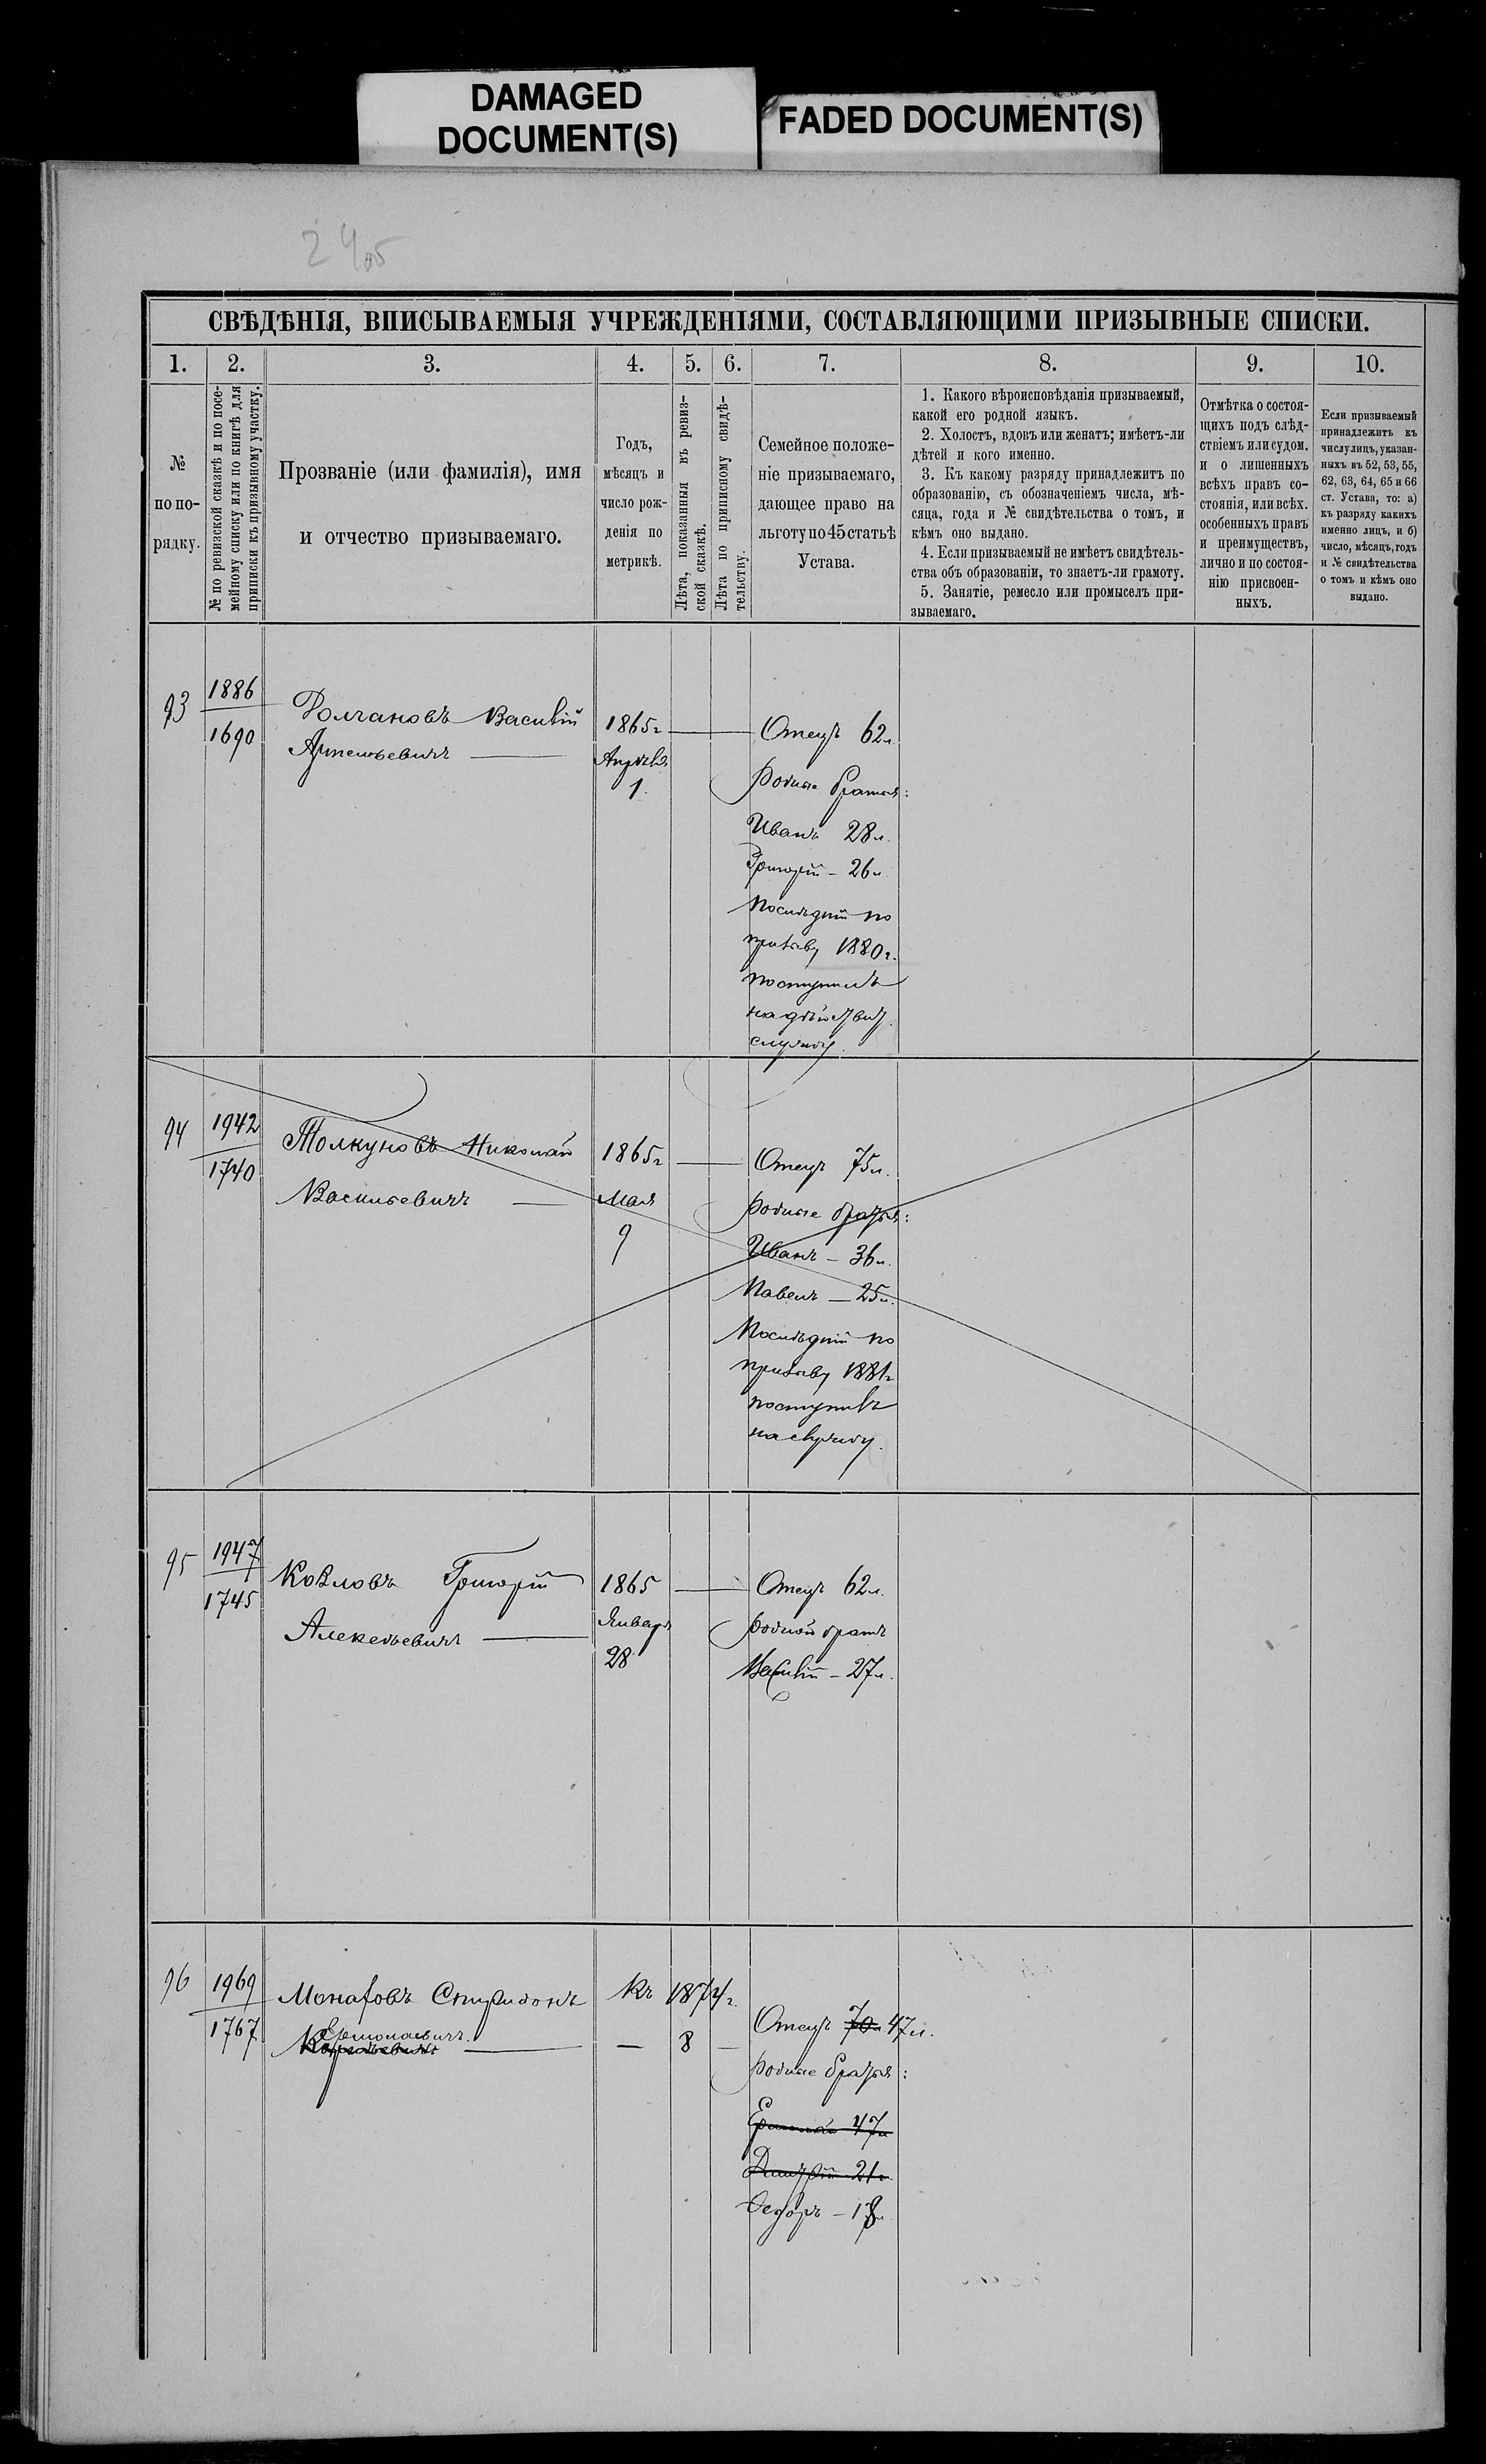 DAMAGED
DOCUMENT(S)
FADED DOCUMENT(S)
СВѢДѢНІЯ, ВПИСЫВАЕМЫЯ УЧРЕЖДЕНІЯМИ, СОСТАВЛЯЮЩИМИ ПРИЗЫВНЫЕ СПИСКИ.
1. 2. 3. 4. 5. 6. 7. 8. 9. 10.
№
по по-
рядку.
№ по ревизской сказкѣ и по посе-
мейному списку или по книгѣ для
приписки къ призывному участку.
Прозваніе (или фамилія), имя
и отчество призываемаго.
Годъ,
мѣсяцъ и
число рож-
денія по
метрикѣ.
Лѣта, показанныя въ ревиз-
ской сказкѣ.
Лѣта по приписному свидѣ-
тельству.
Семейное положе-
ніе призываемаго,
дающее право на
льготу по 45 статьѣ
Устава.
1. Какого вѣроисповѣданія призываемый,
какой его родной языкъ.
2. Холостъ, вдовъ или женатъ; имѣетъ-ли
дѣтей и кого именно.
3. Къ какому разряду принадлежитъ по
образованію, съ обозначеніемъ числа, мѣ-
сяца, года и № свидѣтельства о томъ, и
кѣмъ оно выдано.
4. Если призываемый не имѣетъ свидѣтель-
ства объ образованіи, то знаетъ-ли грамоту.
5. Занятіе, ремесло или промыселъ при-
зываемаго.
Отмѣтка о состоя-
щихъ подъ слѣд-
ствіемъ или судом.
и о лишенныхъ
всѣхъ правъ со-
стоянія, или всѣх.
особенныхъ правъ
и преимуществъ,
лично и по состоя-
нію присвоен-
ныхъ.
Если призываемый
принадлежитъ къ
числу лицъ, указан-
ныхъ въ 52, 53, 55,
62, 63, 64, 65 и 66
ст. Устава, то: а)
къ разряду какихъ
именно лицъ, и б)
число, мѣсяцъ, годъ
и № свидѣтельства
о томъ и кѣмъ оно
выдано.
93
1886
1690
Василій
1865г
Апрѣля
1.
Отецъ 62л
Родные братья:
Иванъ 28л.
Григорій – 26л
Послѣдній по
призыву 1880г.
поступилъ
на дѣйствит.
службу.
94
1942
1740
Толкуновъ Николай
Васильевичъ
1865г
Мая
9
Отецъ 75л.
родные братья:
Иванъ – 36л.
Павелъ – 25л.
Послѣдній по
призыву 1881г
поступилъ
на службу.
95
1947
1745
Козловъ Григорій
Алексѣевичъ
1865
Января
28
Отецъ 62л.
родной братъ
Василій – 27л.
96
1969
1767
Спиридонъ
Ермолаевичъ
Къ 1874г.
— 8 —
Отецъ 70л 47л.
родные братья:
Ермолай 47л
Дмитрій 21г.
Ѳедоръ – 18л